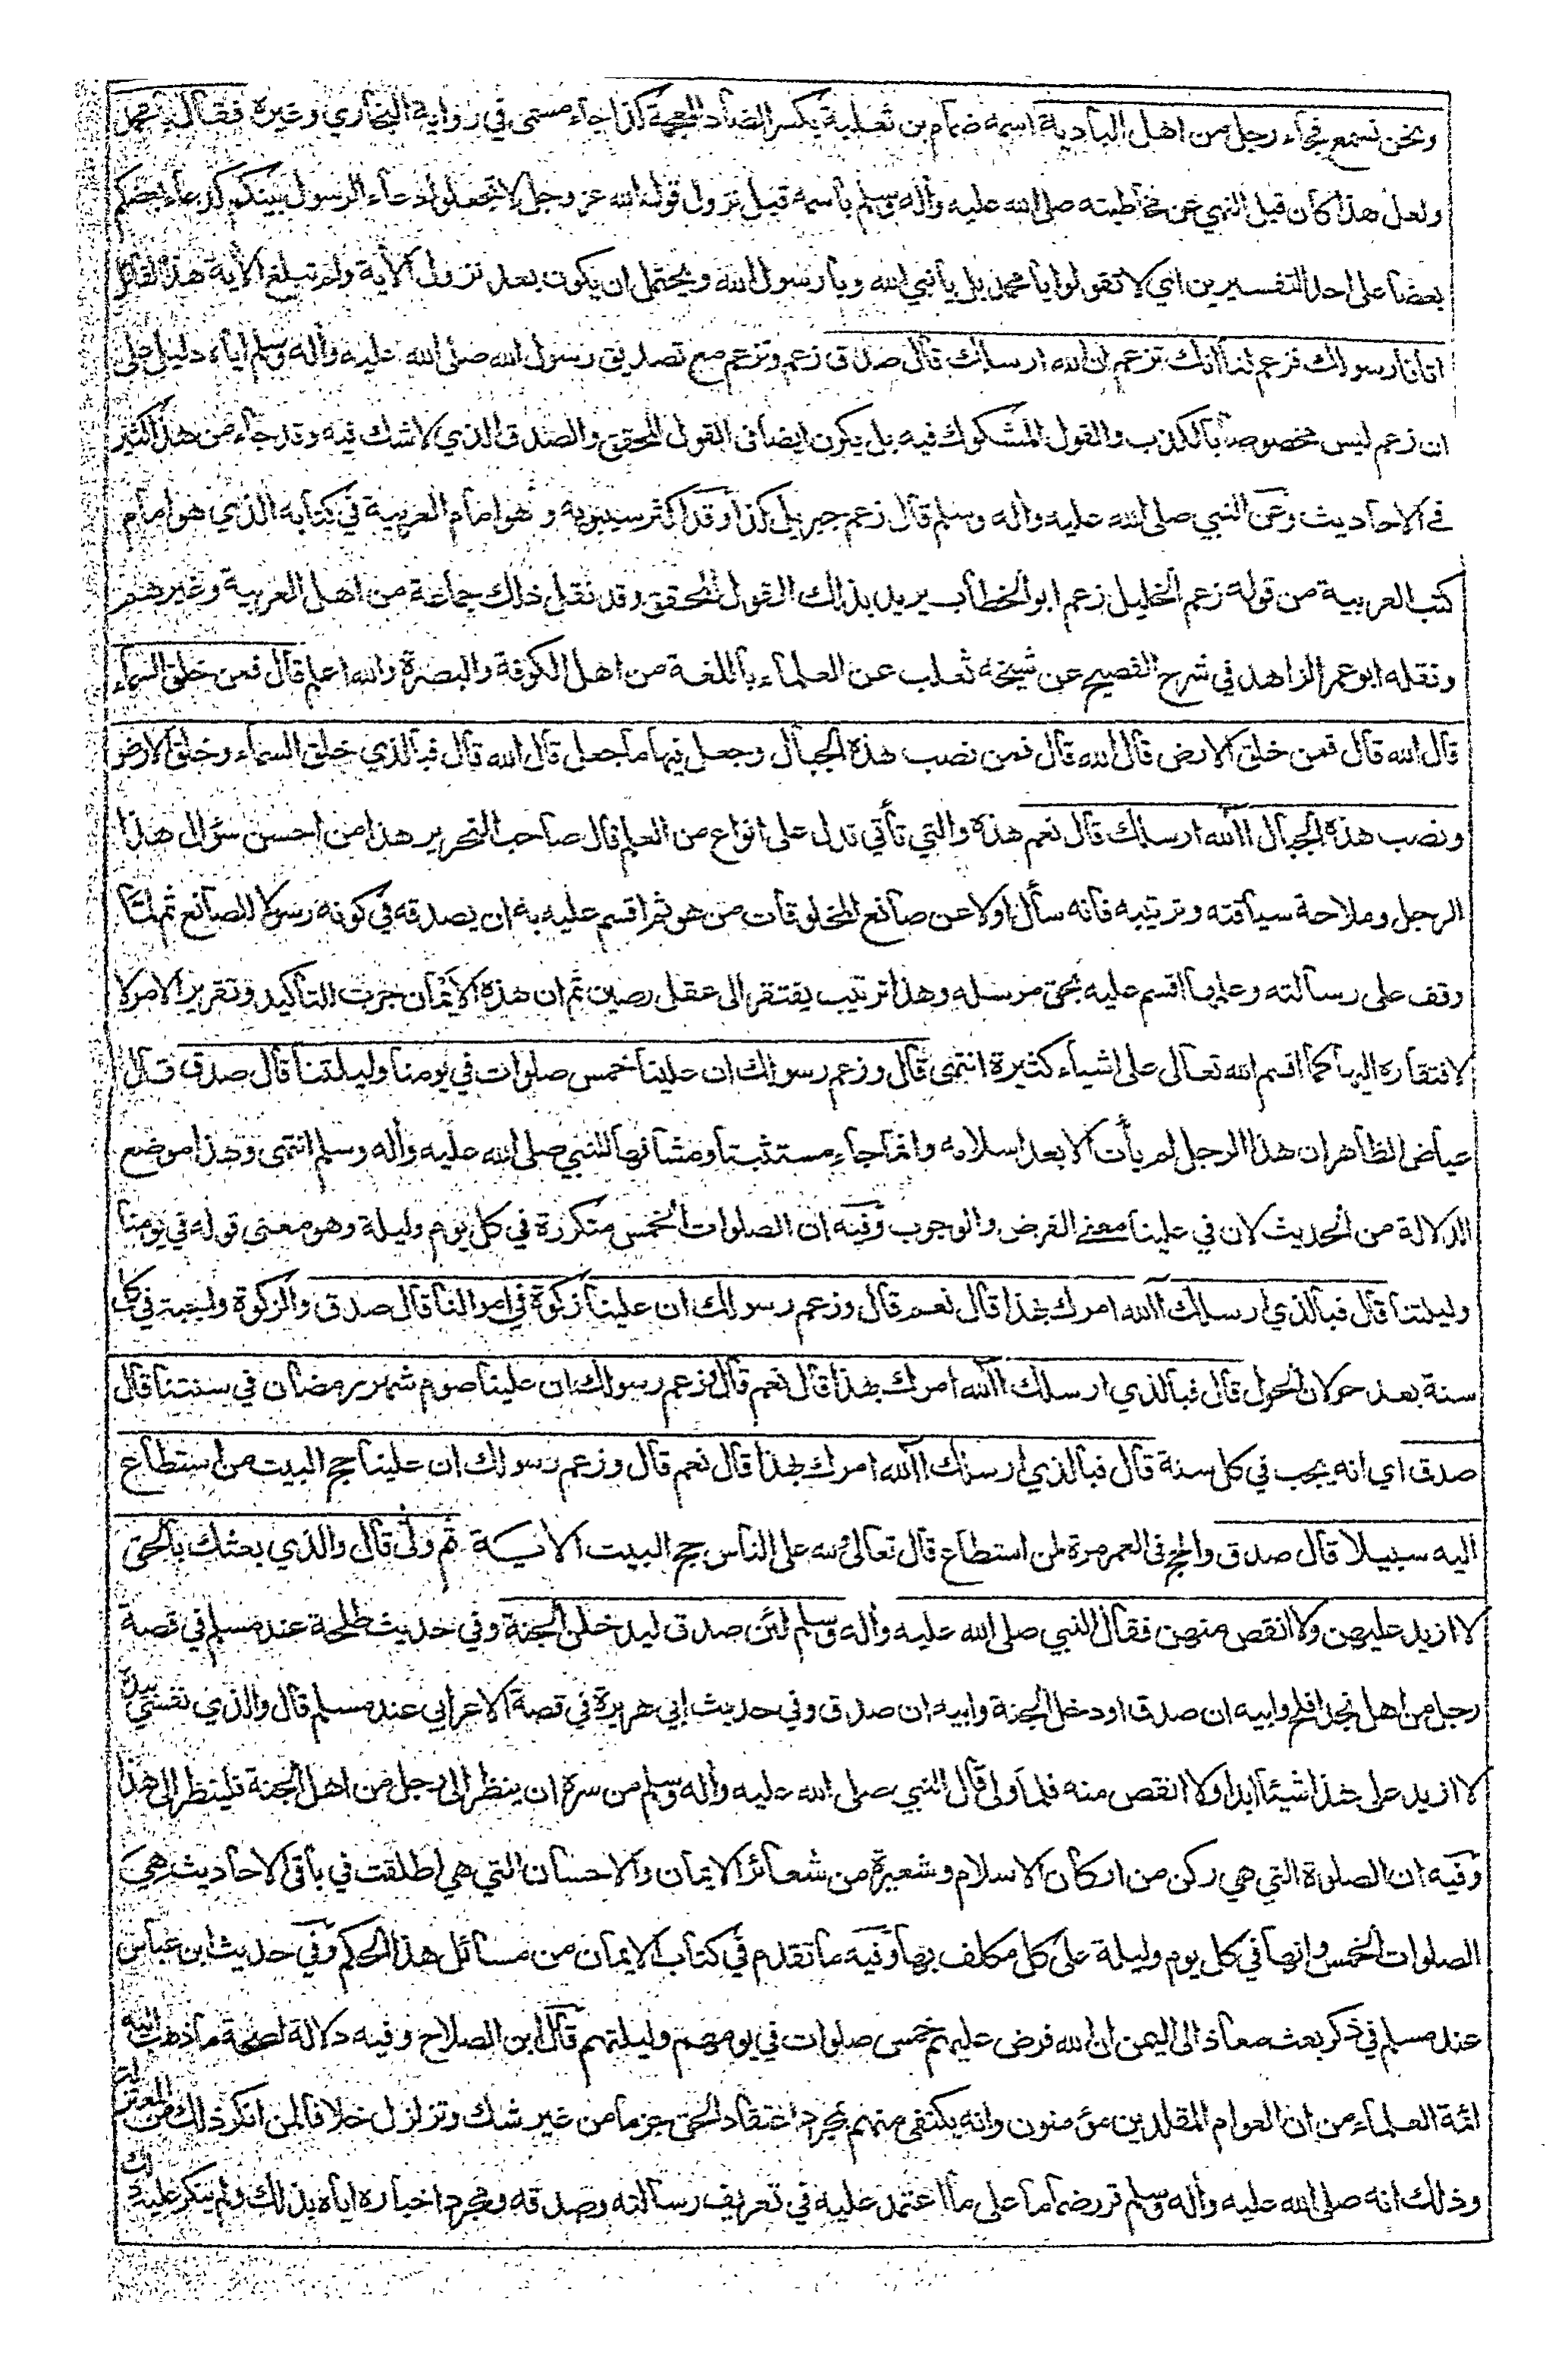 ونحن نسمع فجاء رجل من اهل البادية اسمه ضمام بن ثعلبة بكسر الضاد المعجمة كذا جاء مسمى في رواية البخاري وغيره فقال يا محمد
ولعل هذا كان قبل النهي عن مخاطبته صلى الله عليه واله وسلم باسمه قبل نزول قوله الله عز وجل لا تجعلوا دعاء الرسول بينكم كدعاء بعضكم
بعضا على احد التفسيرين اي لا تقولوا يا محمد بل يا نبي الله ويا رسول الله ويحتمل ان يكون بعد نزول الآية ولم تبلغ الآية هذا القائل
اتانا رسولك فزعم لنا انك تزعم ان الله ارسلك قال صدق زعم وتزعم مع تصديق رسول الله صلى الله عليه واله وسلم اياه دليل على
ان زعم ليس مخصوصا بالكذب والقول المشكوك فيه بل يكون ايضا في القول المحقق والصدق الذي لا شك فيه وقد جاء من هذا كثير
في الاحاديث وعن النبي صلى الله عليه واله وسلم قال زعم جبريل كذا وقد اكثر سيبويه وهو امام العربية في كتابه الذي هو امام
كتب العربية من قوله زعم الخليل زعم ابو الخطاب يريد بذلك القول المحقق وقد نقل ذلك جماعة من اهل العربية وغيرهم
ونقله ابو عمر الزاهد في شرح الفصيح عن شيخه ثعلب عن العلماء باللغة من اهل الكوفة والبصرة والله اعلم قال فمن خلق السماء
قال الله قال فمن خلق الارض قال الله قال فمن نصب هذه الجبال وجعل فيها ما جعل قال الله قال فبالذي خلق السماء وخلق الارض
ونصب هذه الجبال آلله ارسلك قال نعم هذه والتي تأتي تدل على انواع من العلم قال صاحب التحرير هذا من احسن سؤال هذا
الرجل وملاحة سياقته وترتيبه فانه سأل اولا عن صانع المخلوقات من هو ثم اقسم عليه به ان يصدقه في كونه رسولا للصانع ثم لما
وقف على رسالته وعلمها اقسم عليه بحق مرسله وهذا ترتيب يفتقر الى عقل رصين ثم ان هذه الايمان جرت للتاكيد وتقرير الامر لا
لافتقاره اليها كما اقسم الله تعالى على اشياء كثيرة انتهى قال وزعم رسولك ان علينا خمس صلوات في يومنا وليلتنا قال صدق قال
عياض الظاهر ان هذا الرجل لم يأت الا بعد اسلامه وانما جاء مستثبتا ومشافها للنبي صلى الله عليه واله وسلم انتهى وهذا موضع
الدلالة من الحديث لان في علينا معنى الفرض والوجوب وفيه ان الصلوات الخمس متكررة في كل يوم وليلة وهو معنى قوله في يومنا
وليلتنا قال فبالذي ارسلك آلله امرك بهذا قال نعم قال وزعم رسولك ان علينا زكوة في اموالنا قال صدق والزكوة واجبة في كل
سنة بعد حولان الحول قال فبالذي ارسلك آلله امرك بهذا قال نعم قال وزعم رسولك ان علينا صوم شهر رمضان في سنتنا قال
صدق اي انه يجب في كل سنة قال فبالذي ارسلك آلله امرك بهذا قال نعم قال وزعم رسولك ان علينا حج البيت من استطاع
اليه سبيلا قال صدق والحج في العمر مرة لمن استطاع قال تعالى لله على الناس حج البيت الاية ثم ولى قال والذي بعثك بالحق
لا ازيد عليهن ولا انقص منهن فقال النبي صلى الله عليه واله وسلم لئن صدق ليدخلن الجنة وفي حديث طلحة عند مسلم في قصة
رجل من اهل نجد افلح وابيه ان صدق او دخل الجنة وابيه ان صدق وفي حديث ابي هريرة في قصة الاعرابي عند مسلم قال والذي نفسي بيده
لا ازيد على هذا شيئا ابدا ولا انقص منه فلما ولى قال النبي صلى الله عليه واله وسلم من سره ان ينظر الى رجل من اهل الجنة فلينظر الى هذا
وفيه ان الصلوة التي هي ركن من اركان الاسلام وشعيرة من شعائر الايمان والاحسان التي هي اطلقت في باقي الاحاديث هي
الصلوات الخمس وانها في كل يوم وليلة على كل مكلف بها وفيه ما تقدم في كتاب الايمان من مسائل هذا الحكم وفي حديث ابن عباس
عند مسلم في ذكر بعث معاذ الى اليمن ان الله فرض عليهم خمس صلوات في يومهم وليلتهم قال ابن الصلاح وفيه دلالة لصحة ما ذهب اليه
ائمة العلماء من ان العوام المقلدين مؤمنون وانه يكتفى منهم بمجرد اعتقاد الحق جزما من غير شك وتزلزل خلافا لمن انكر ذلك من المعتزلة
وذلك انه صلى الله عليه واله وسلم قرر ضماما على ما اعتمد عليه في تعريف رسالته وصدقه ومجرد اخباره اياه بذلك ولم ينكر عليه ذلك